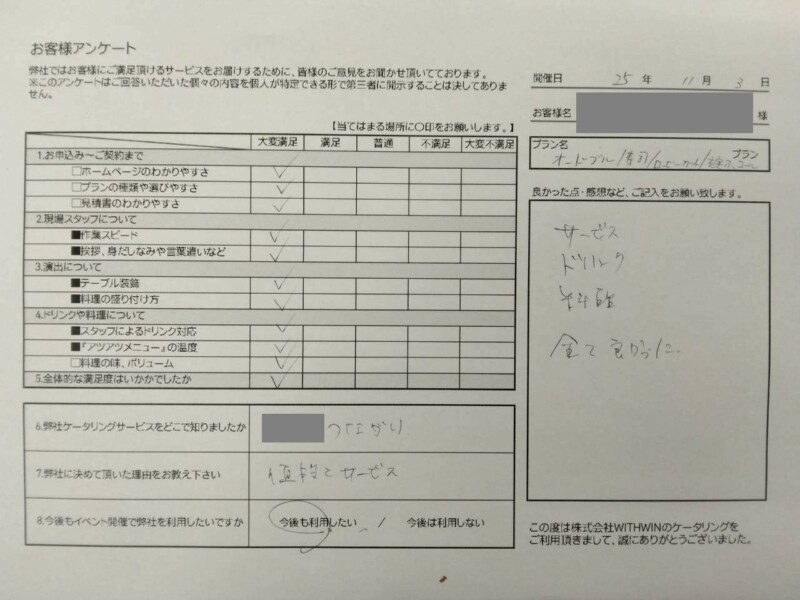 お客様アンケート
弊社ではお客様にご満足頂けるサービスをお届けするために、皆様のご意見をお聞かせ頂いております。
※このアンケートはご回答いただいた個々の内容を個人が特定できる形で第三者に開示することは決してありま
せん。
開催日 25 年 11 月 3 日
お客様名 様
【当てはまる場所に〇印をお願いします。】
大変満足 満足 普通 不満足 大変不満足
プラン名
オードブル/寿司/ プラン
1.お申込み～ご契約まで
□ホームページのわかりやすさ
□プランの種類や選びやすさ
□見積書のわかりやすさ
2.現場スタッフについて
■作業スピード
■挨拶、身だしなみや言葉遣いなど
3.演出について
■テーブル装飾
■料理の盛り付け方
4.ドリンクや料理について
■スタッフによるドリンク対応
■『アツアツメニュー』の温度
□料理の味、ボリューム
5.全体的な満足度はいかがでしたか
良かった点・感想など、ご記入をお願い致します。
サービス
ドリンク
料理
全て良かった。
6.弊社ケータリングサービスをどこで知りましたか つながり
7.弊社に決めて頂いた理由をお教え下さい 値段とサービス
8.今後もイベント開催で弊社を利用したいですか 今後も利用したい / 今後は利用しない
この度は株式会社WITHWINのケータリングを
ご利用頂きまして、誠にありがとうございました。